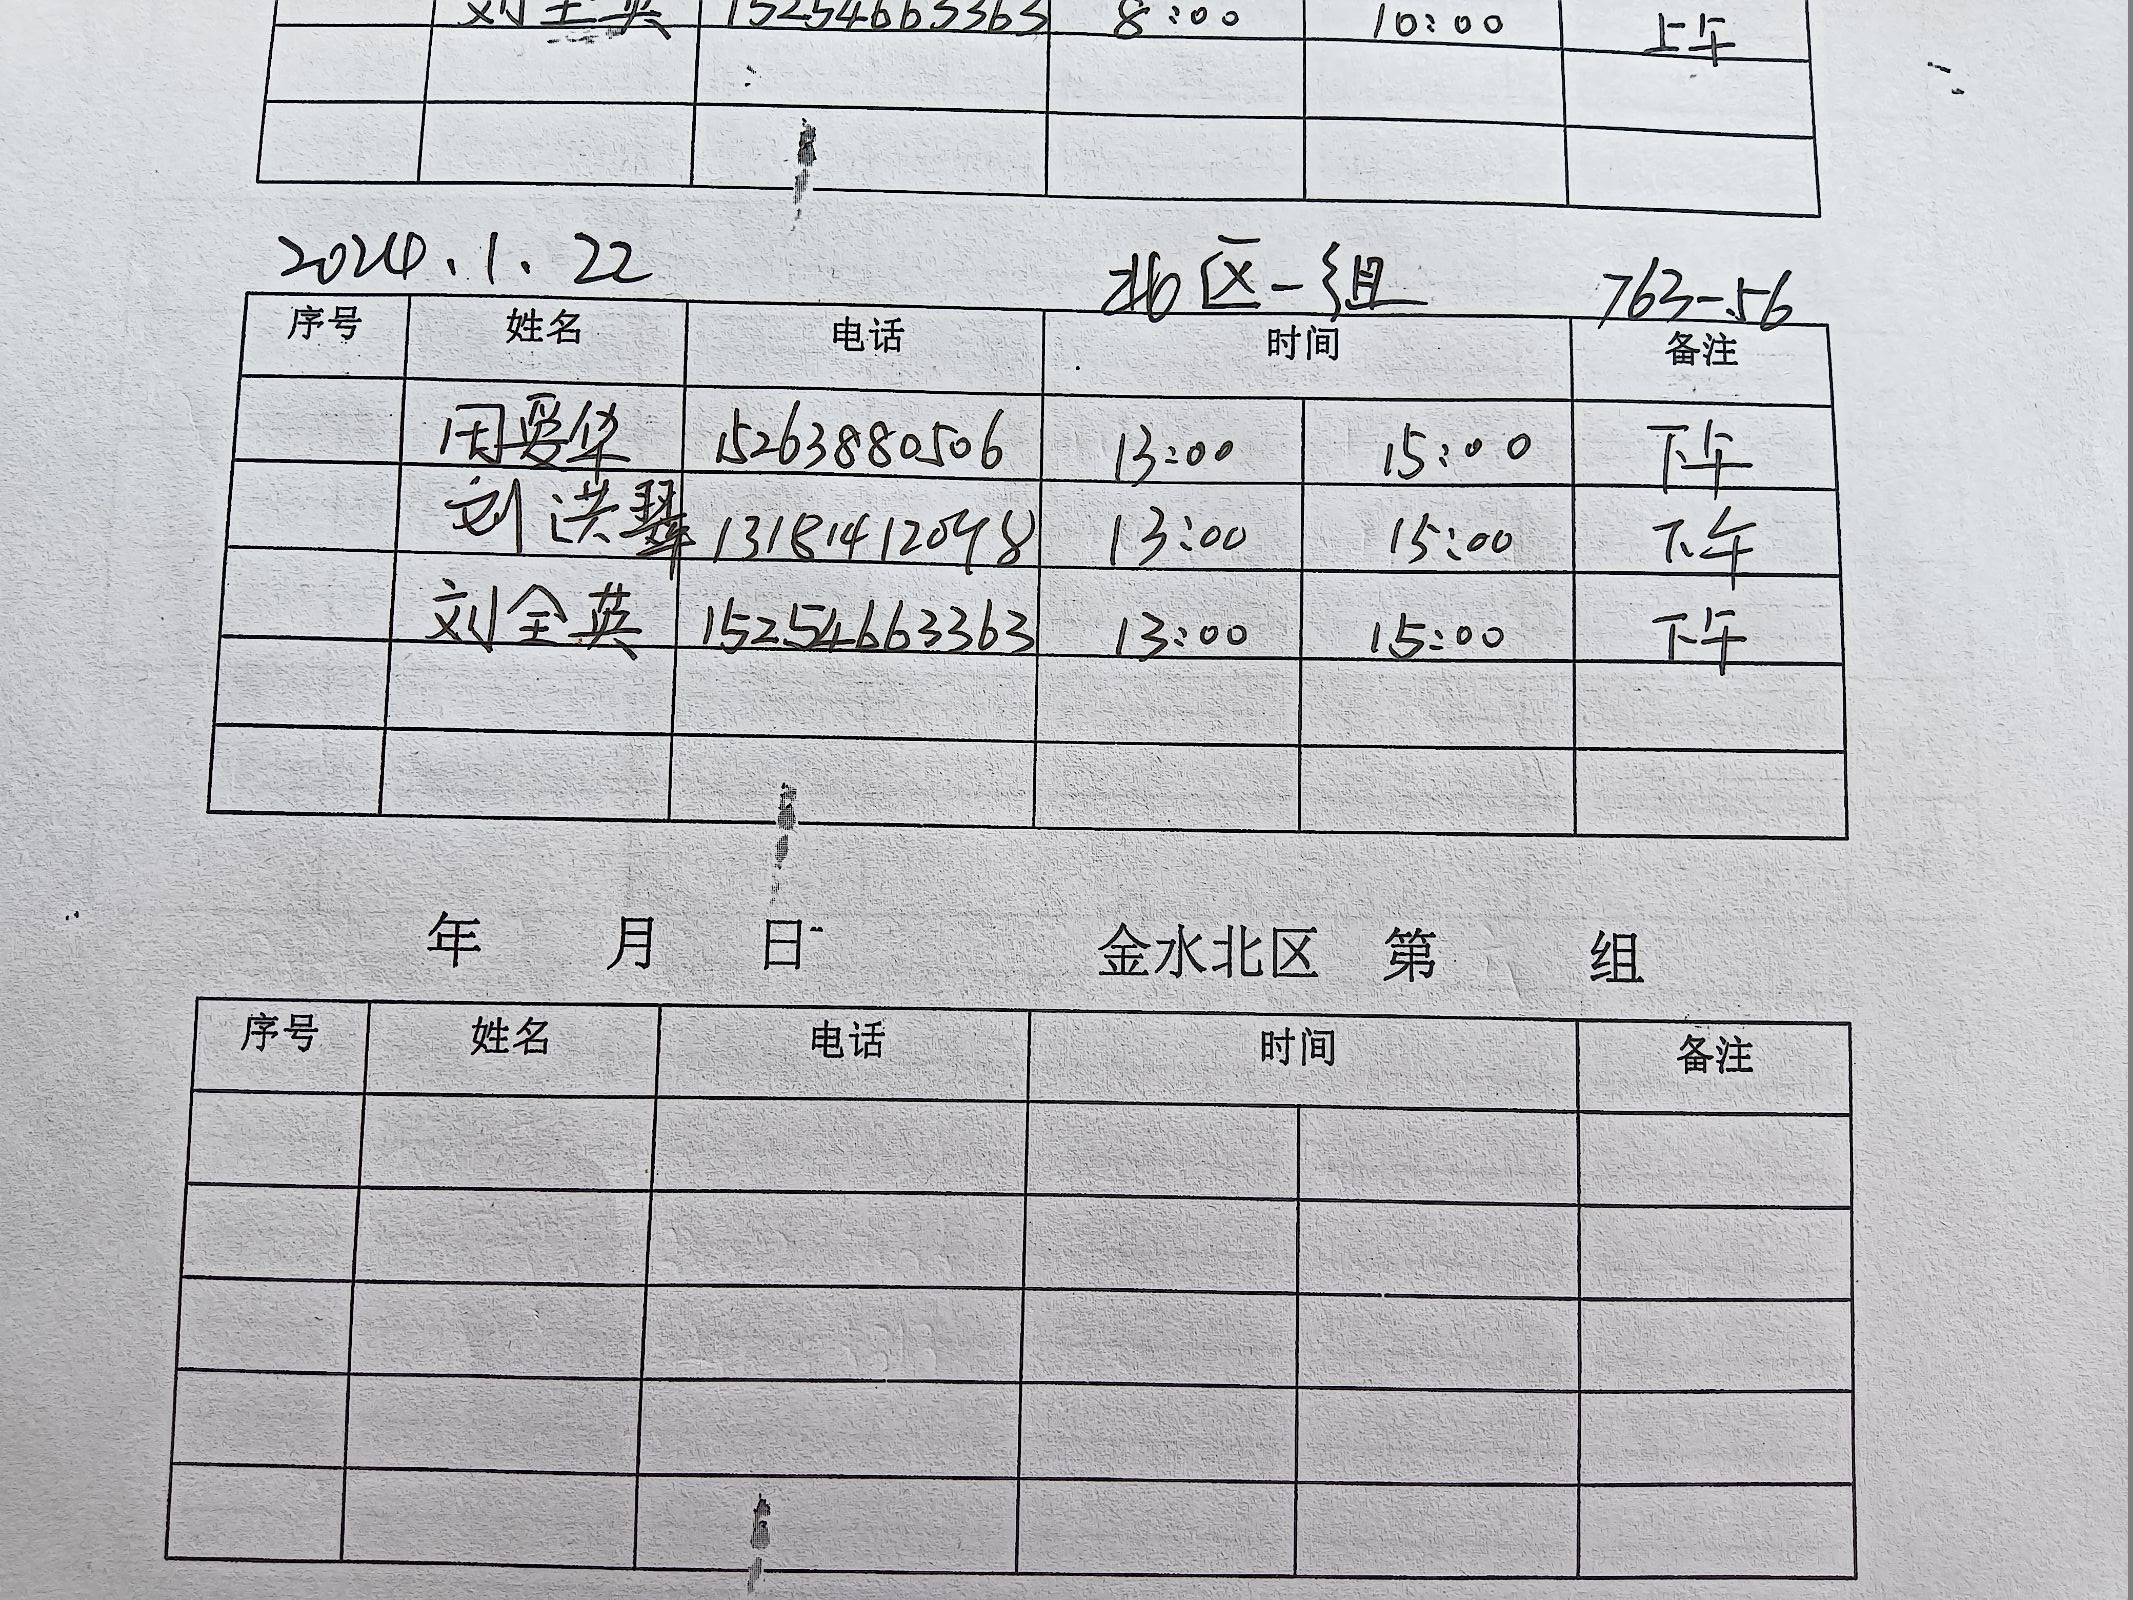 刘全英 15254663363 8:00 10:00 上午
2024.1.22 北区一组 763-56
序号 姓名 电话 时间 备注
周爱华 15263880506 13:00 15:00 下午
刘洪琴 13181412098 13:00 15:00 下午
刘全英 15254663363 13:00 15:00 下午
年 月 日 金水北区 第 组
序号 姓名 电话 时间 备注